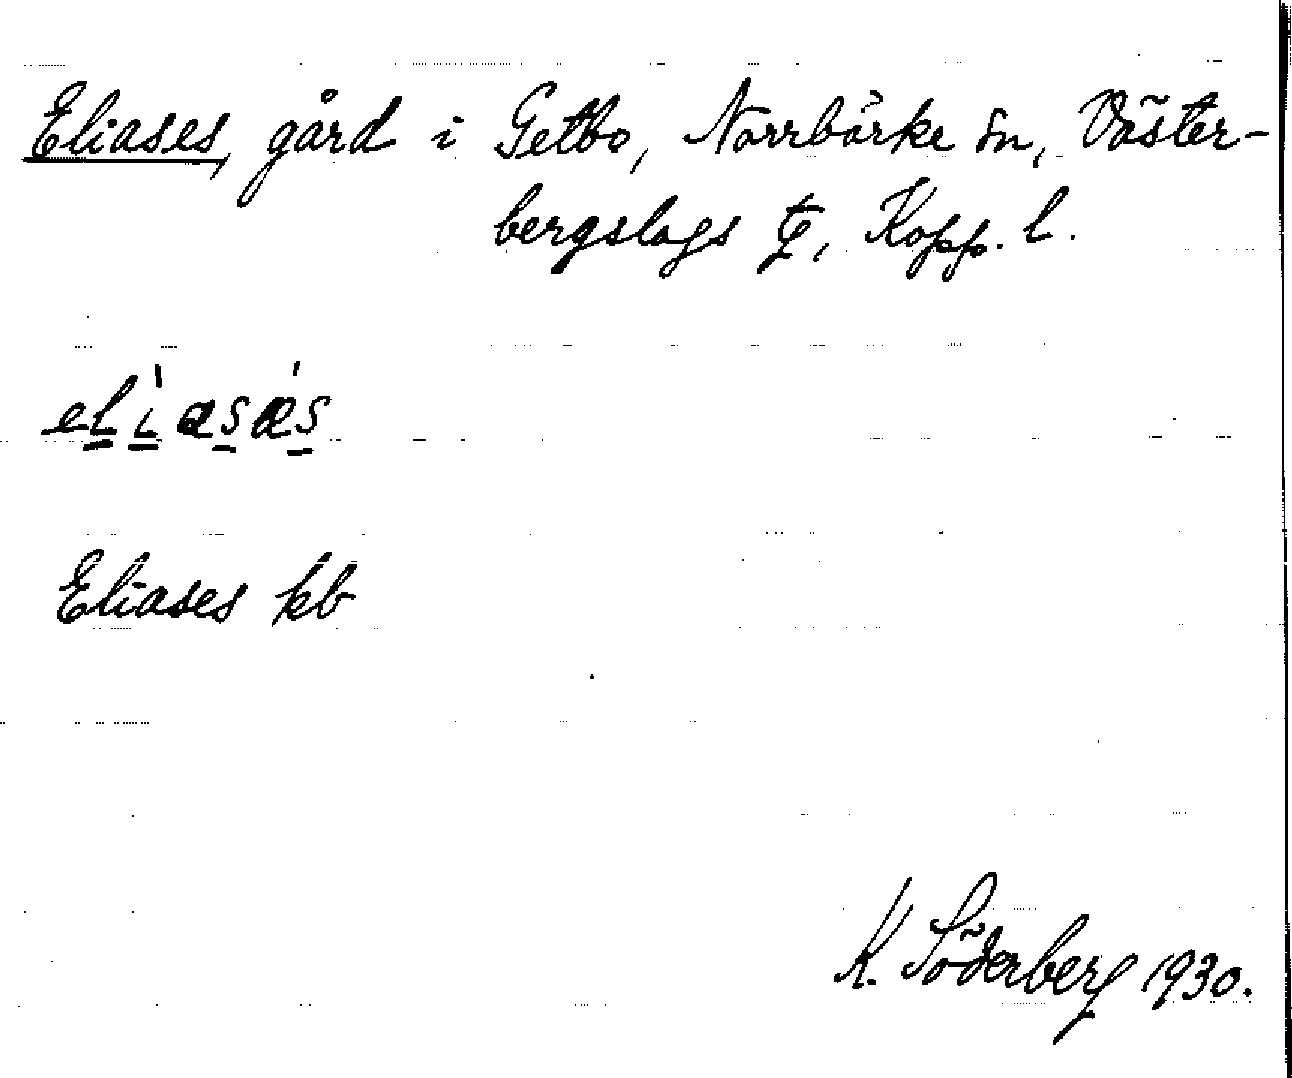 Eliases, gård i Getbo, Norrbärke sn, Väster-
bergslags tg, Kopp. l.
elìasæ̀s
Eliases kb
K. Söderberg 1930.